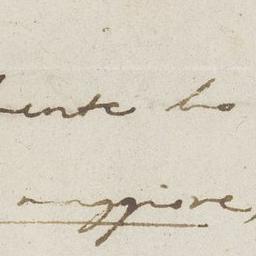 ente ho
maggiore,